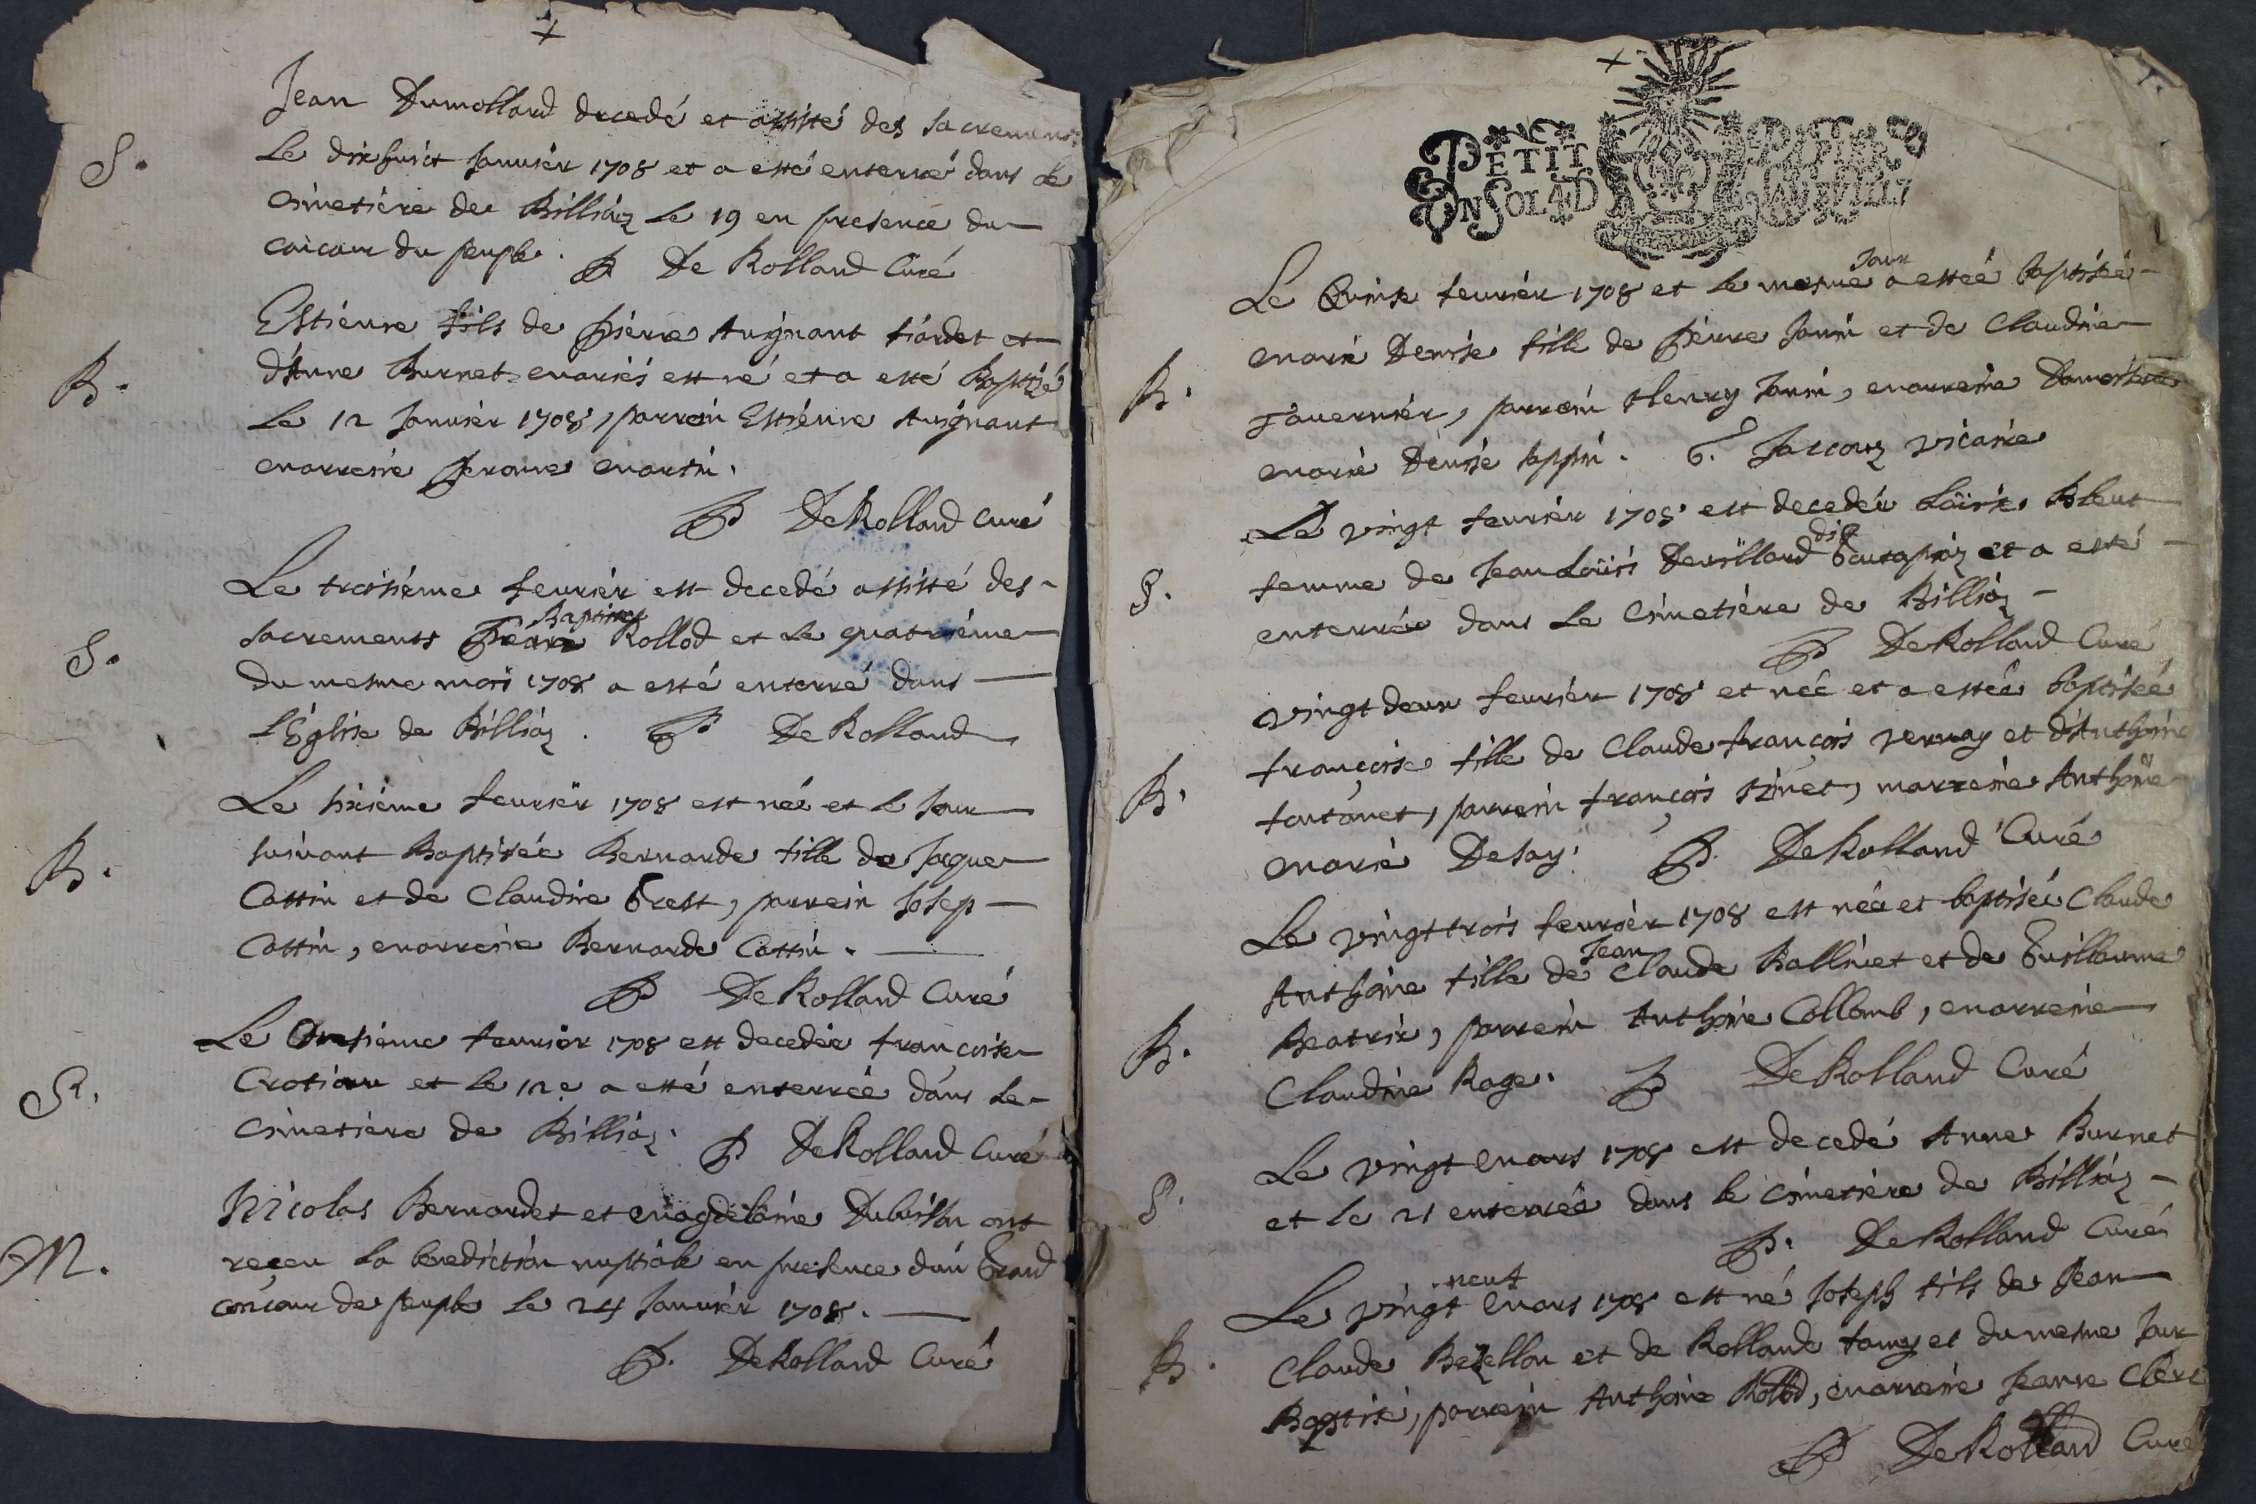 Jean Dumollard decedé et assisté des sacremens
S.
Le dixhuict Janvier 1708 et a esté enterré dans le
cimetière de Billiaz le 19 en presence du
concour du peuple. P De Rolland Curé
Estienne fils de pierre Avignant fiardet et
B.
d'Anne Burnet mariés est né et a esté Baptizé
Le 12 Janvier 1708, parrein Estienne Avignant
marreine Peronne martin.
P DeRolland curé
Le troisiéme fevrier est decedé assisté des
Baptiste
S.
sacrements Rollod et le quatriéme
du mesme mois 1708 a esté enterré dans
l'Église de Billiaz. P DeRolland
Le sixiéme fevrier 1708 est née et le Jour
suivant Baptisée Bernarde fille de Jaque
B.
Cottin et de Claudine Grest, parrein Josep
Cottin, marreine Bernarde Cottin.
P DeRolland Curé
Le Onsiéme fevrier 1708 est decedée françoise
S.
et le 12e a esté enterrée dans le
cimetiere de Billiaz. P DeRolland Curé
Nicolas Bernardet et magdelaine Dubuisson ont
M.
reçeu la benediction nuptiale en presence d'un Grand
concour de peuple le 24 Janvier 1708.
P. DeRolland Curé
PETIT PAPIER
UN SOL 4D
Jour
Le Quinse fevrier 1708 et le mesme a estée baptisée
marie Denise fille de Pierre Janin et de Claudine
B.
Tavernier, parrein Henry Janin, marreine Damoiselle
marie Denise Jappin. G. Jaccouz vicaire
Le vingt fevrier 1708 est decedée Loüise Blent
dit
femme de Jean Loüis Devillard et a esté
S.
enterrée dans le Cimetiére de Billiaz
P DeRolland Curé
vingt deux fevrier 1708 et née et a estée baptisée
françoise fille de Claude françois vernay et d'Anthoine
B.
fontanet, parrein françois Sinet, marreine Anthoine
marie Desay. P. DeRolland Curé
Le vingt trois fevrier 1708 est née et baptisée Claude
Jean
Anthoine fille de Claude Ballivet et de Guillauma
B.
Beatrix, parrein Anthoine Collomb, marreine
Claudine Roge. P DeRolland Curé
Le vingt mars 1708 est decedé Anne Burnet
S.
et le 21 enterrée dans le cimetiére de Billiaz
P. DeRolland Curé
neuf
Le vingt mars 1708 est né Joseph fils de Jean
B.
Claude Bezellon et de Rolland et du mesme Jour
Baptisé, parrein Anthoine Rollod, marreine Jeanne Clerc
P DeRolland Curé